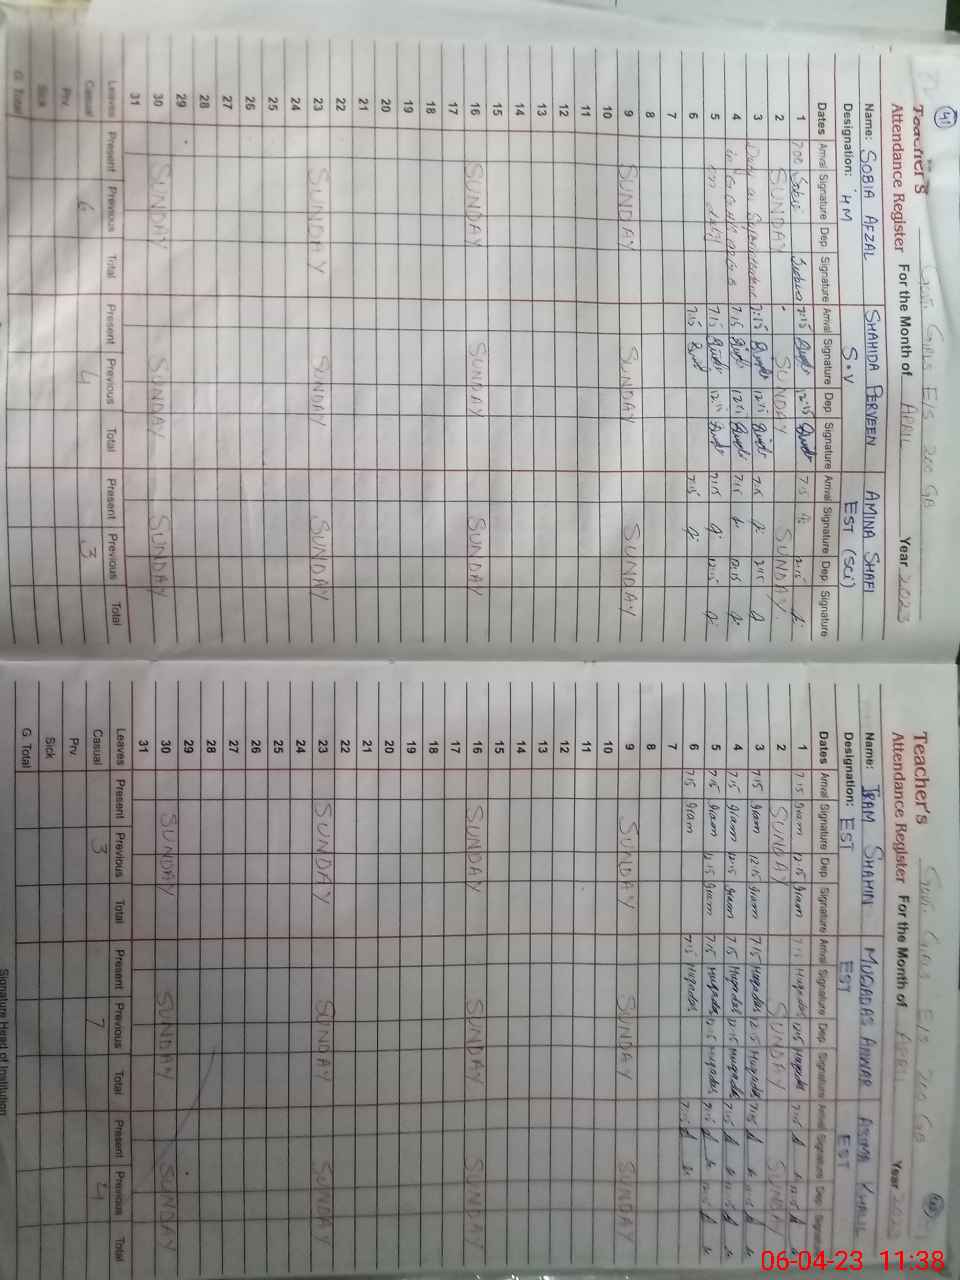 41
Teacher's Govt. GIRLS E/S 200 GB
Attendance Register For the Month of APRIL Year 2023
Name: SOBIA AFZAL SHAHIDA PERVEEN AMINA SHAFI
Designation: HM S.V EST (SCI)
Dates Arrival Signature Dep Signature Arrival Signature Dep Signature Arrival Signature Dep Signature
1 7:00 Sobia Sobia 7:15 12:15 7:15 12:15
2 SUNDAY SUNDAY SUNDAY
3 Duty as Superintendent 7:15 12:15 7:15 12:15
4 7:15 12:15 7:15 12:15
5 7:15 12:15 7:15 12:15
6 7:15 7:15
7
8
9 SUNDAY SUNDAY SUNDAY
10
11
12
13
14
15
16 SUNDAY SUNDAY SUNDAY
17
18
19
20
21
22
23 SUNDAY SUNDAY SUNDAY
24
25
26
27
28
29
30 SUNDAY SUNDAY SUNDAY
31
Leaves Present Previous Total Present Previous Total Present Previous Total
Casual 6 4 3
Prv.
Sick
G. Total
Teacher's Govt. GIRLS E/S 200 GB
Attendance Register For the Month of APRIL Year 2023
Name: IRAM SHAHIN MUQADAS ANWAR ASIMA KHALIL
Designation: EST EST EST
Dates Arrival Signature Dep Signature Arrival Signature Dep Signature Arrival Signature Dep Signature
1 7:15 Iram 12:15 Iram 7:15 Muqadas 12:15 Muqadas 7:15 12:15
2 SUNDAY SUNDAY SUNDAY
3 7:15 Iram 12:15 Iram 7:15 Muqadas 12:15 Muqadas 7:15 12:15
4 7:15 Iram 12:15 Iram 7:15 Muqadas 12:15 Muqadas 7:15 12:15
5 7:15 Iram 12:15 Iram 7:15 Muqadas 12:15 Muqadas 7:15 12:15
6 7:15 Iram 7:15 Muqadas 7:15
7
8
9 SUNDAY SUNDAY SUNDAY
10
11
12
13
14
15
16 SUNDAY SUNDAY SUNDAY
17
18
19
20
21
22
23 SUNDAY SUNDAY SUNDAY
24
25
26
27
28
29
30 SUNDAY SUNDAY SUNDAY
31
Leaves Present Previous Total Present Previous Total Present Previous Total
Casual 3 7 4
Prv.
Sick
G. Total
Signature Head of Institution
06-04-23 11:38